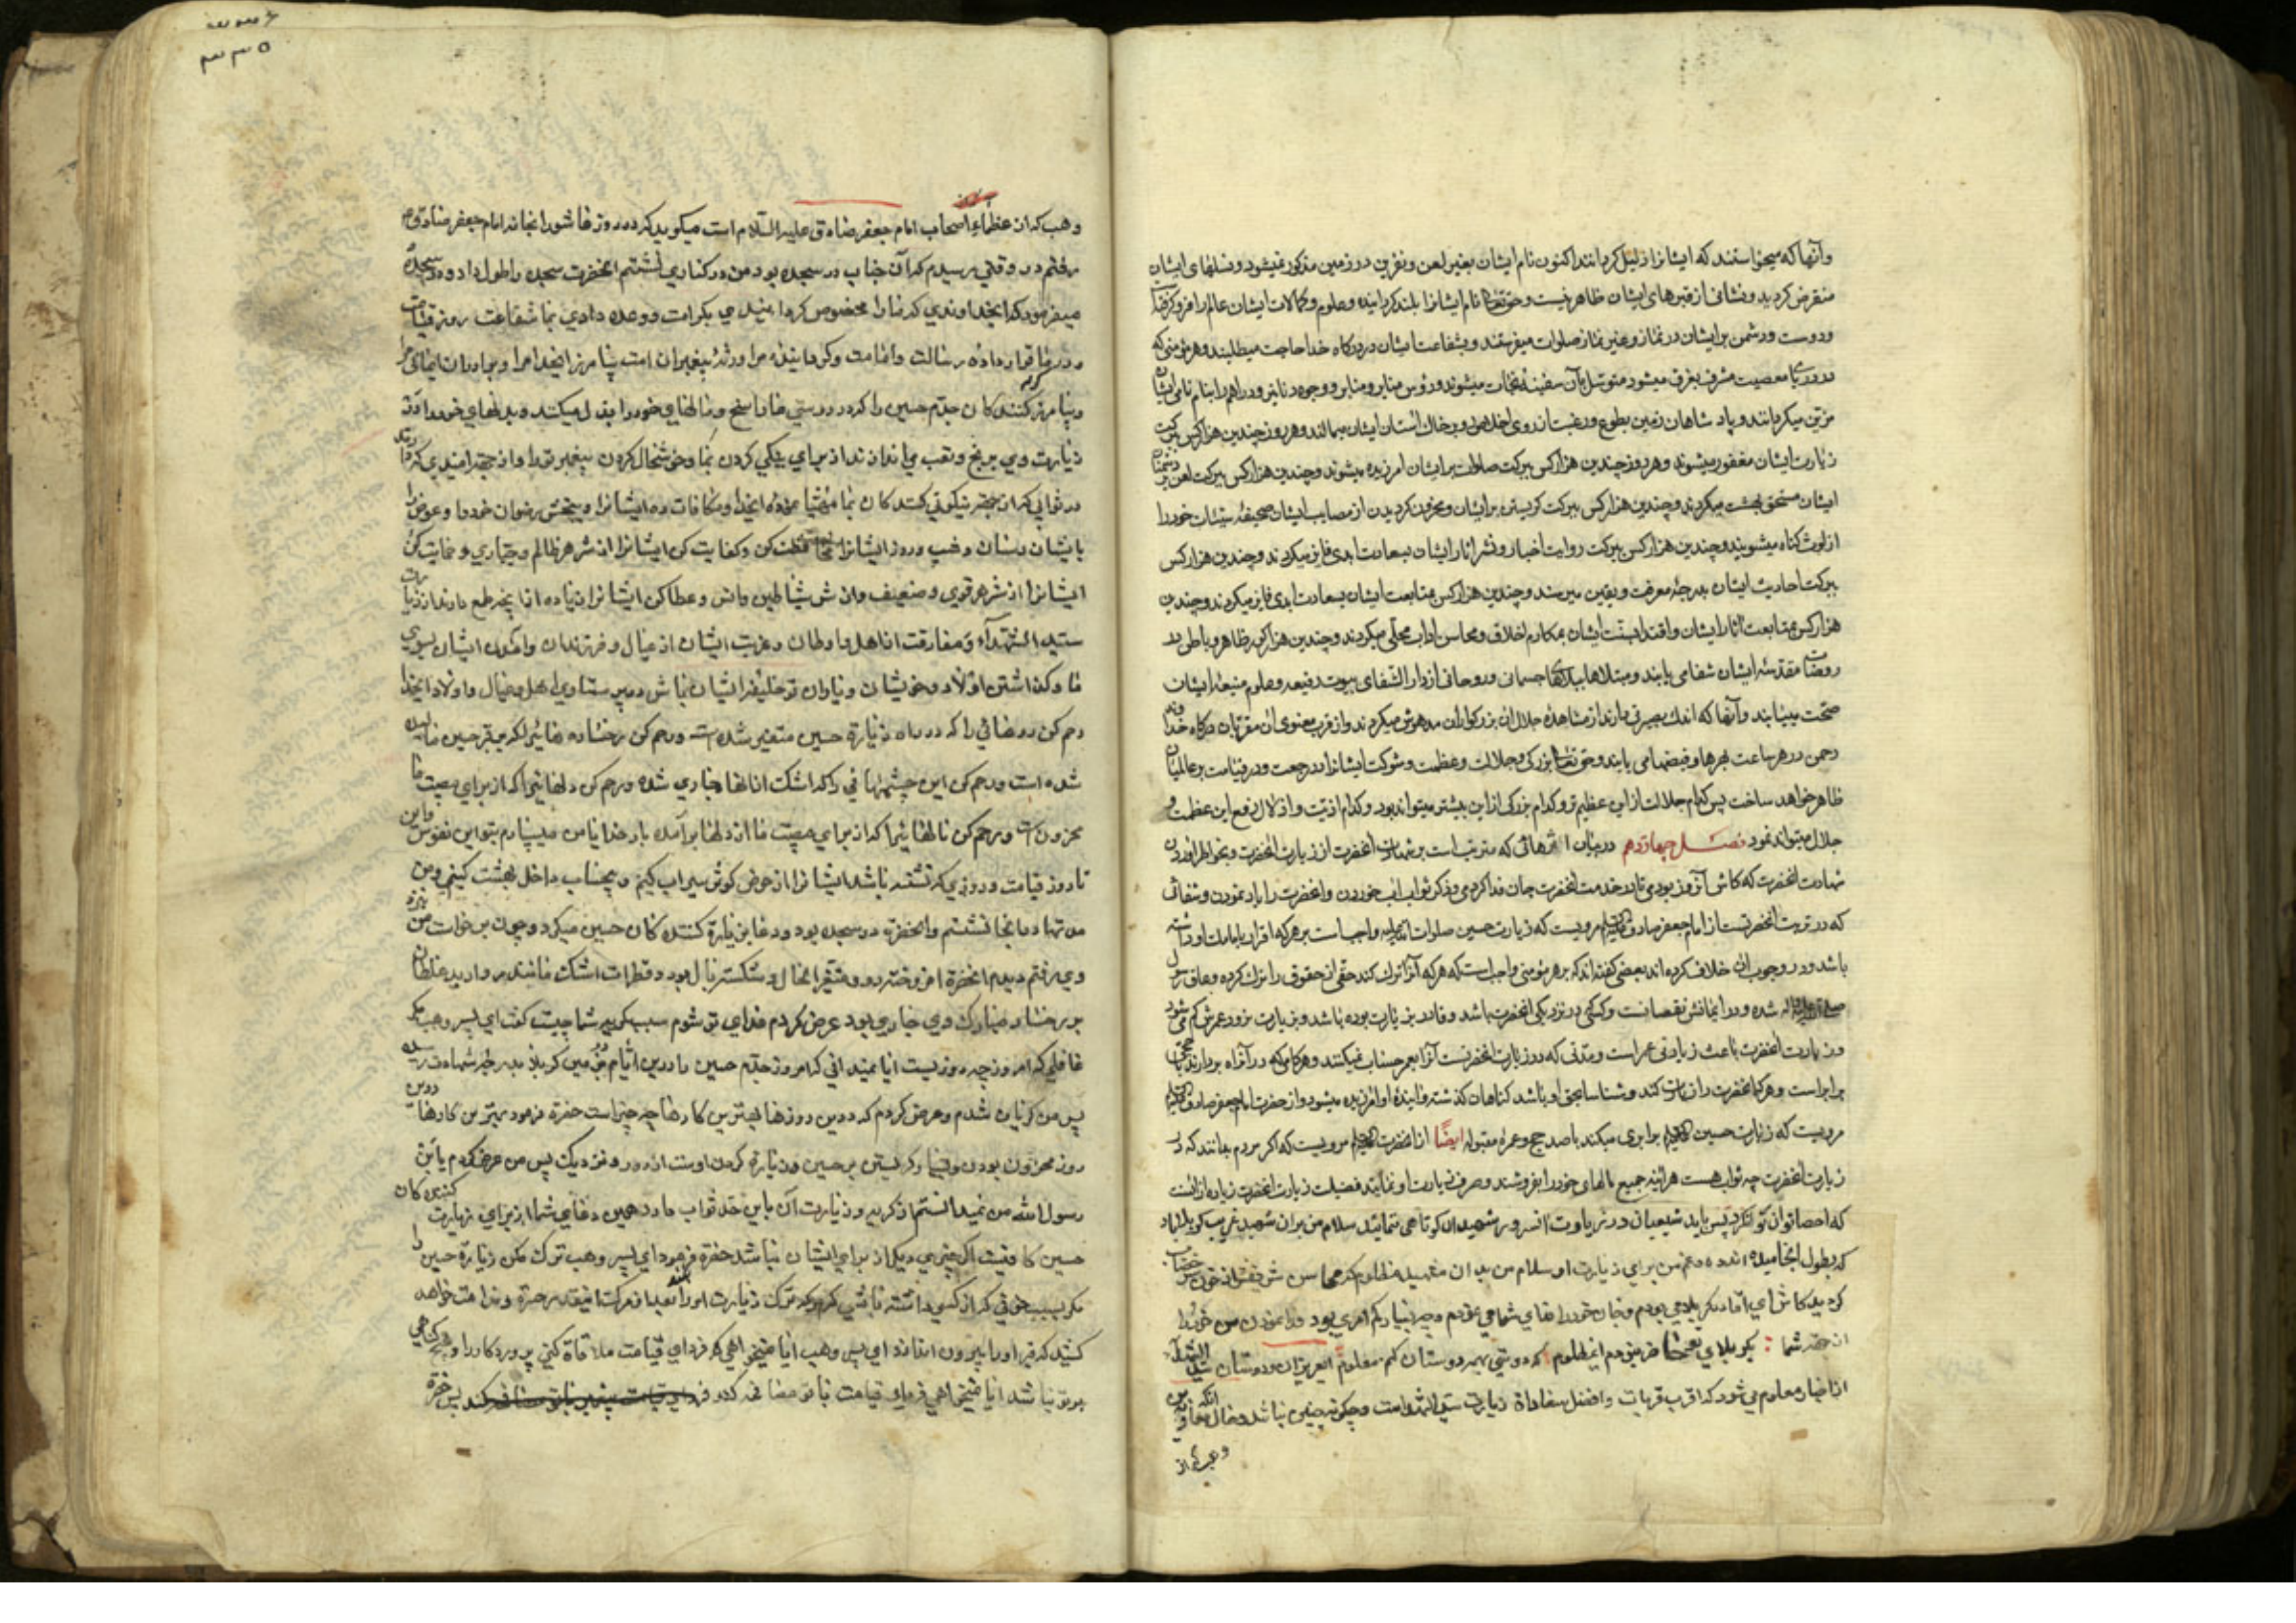 وآنها که میخواستند که ایشانرا ذلیل کردانند اکنون نام ایشان بغیر لعن ونفرین در زمین مذکور نمیشود ونسلهای ایشان
منقرض کردید ونشانی از قبرهای ایشان ظاهر نیست وحق تعالی نام ایشانرا بلند کردانیده وعلوم وکمالات ایشان عالم را فرو کرفته
ودوست ودشمن بر ایشان در نماز وغیر نماز صلوات میفرستند وبشفاعت ایشان در درکاه خدا حاجت میطلبند وهر مؤمنی که
در دریای معصیت مشرف بغرق میشود متوسل بآن سفینۀ نجات میشوند ورؤس منابر ووجوه دنانیر ودراهم را بنام نامی ایشان
مزین میکردانند وپادشاهان زمین بطوع ورغبت از روی اخلاص رو بر خاک آستان ایشان میمالند وهر روز چندین هزار کس ببرکت
زیارت ایشان مغفور میشوند وهر روز چندین هزار کس ببرکت صلوات بر ایشان آمرزیده میشوند وچندین هزار کس ببرکت لعن بر دشمنان
ایشان مستحق بهشت میکردند وچندین هزار کس ببرکت کریستن بر ایشان ومحزون کردیدن از مصایب ایشان صحیفۀ سیئات خود را
از لوث کناه میشویند وچندین هزار کس ببرکت روایت اخبار ونشر آثار ایشان بسعادت ابدی فایز میکردند وچندین هزار کس
ببرکت احادیث ایشان بدرجۀ معرفت ویقین میرسند وچندین هزار کس بمتابعت ایشان بسعادت ابدی فایز میکردند وچندین
هزار کس بمتابعت آثار ایشان واقتدا بسنّت ایشان بمکارم اخلاق ومحاسن آداب محلّی میکردند وچندین هزار کور ظاهر وباطن در
روضات مقدسۀ ایشان شفا می یابند ومبتلاها ببلاهای جسمانی وروحانی از دار الشفای بیوت رفیعه وعلوم منیعۀ ایشان
صحّت مییابند وآنها که اندک بصیرتی دارند از مشاهدۀ جلال آن بزرکواران مدهوش میکردند واز قرب معنوی آن مقربان درکاه خداوند
رحمن در هر ساعت بهرها وفیضها می یابند وحق تعالی بزرکی وجلالت وعظمت وشوکت ایشانرا در رجعت ودر قیامت بر عالمیان
ظاهر خواهد ساخت پس کدام جلالت از این عظیم تر وکدام بزرکی از این بیشتر میتواند بود وکدام اذیت واذلال رفع این عظمت و
جلال میتواند نمود فصـل چهاردهم در بیان اثرهائی که مترتب است بر شهادت آنحضرت از زیارت آنحضرت وبخواطر آوردن
شهادت آنحضرت که کاش آنروز بودمی تا در خدمت آنحضرت جان فدا کردمی وذکر ثواب آب خوردن وآنحضرت را یاد نمودن وشفائی
که در تربت آنحضرتست از امام جعفر صادق علیه السلام مرویست که زیارت حسین صلوات الله علیه واجب است بر هر که اقرار بامامت او داشته
باشد ودر وجوب آن خلاف کرده اند بعضی کفته اند که بر هر مؤمنی واجب است که هر که آنرا ترک کند حقی از حقوق را ترک کرده وعاق رسول
صلی الله علیه وآله شده ودر ایمانش نقصانست وکسی که در نزدیکی آنحضرت باشد وقادر بزیارت بوده باشد وبزیارت نرود عمرش کم می شود
وزیارت آنحضرت باعث زیادتی عمر است ومدتی که در زیارت آنحضرتست آنرا بعمر حساب نمیکنند وهر کامی که در آنراه بردارند با حجی
برابر است وهر که آنحضرت را زیارت کند وشناسا بحق او باشد کناهان کذشته وآیندۀ او آمرزیده میشود واز حضرت امام جعفر صادق علیه السلام
مرویست که زیارت حسین علیه السلام برابری میکند با صد حج وعمرۀ مقبوله ایضًا از آنحضرت علیه السلام مرویست که اکر مردم بدانند که در
زیارت آنحضرت چه ثواب هست هر آئینه جمیع مالهای خود را بفروشند وصرف زیارت او نمایند فضیلت زیارت آنحضرت زیاده از آنست
که احصا توان کرد پس باید شیعیان در زیارت آنسرور شهیدان کوتاهی ننمایند سلام من بران شهید غریب کربلا باد
که بطول انجامیده اندوه وغم من برای زیارت او سلام من بدان شهید مظلوم که محاسن شریفش از خون خضاب
کردید کاش ای آقا در کربلا می بودم وجان خود را فدای شما می نمودم
از حضرت شما کربلای
از اخبار معلوم می شود که اقرب قربات وافضل سعادات زیارت سید الشهدا است وچکونه چنین نباشد وحال آنکه معاویه بن
وهب که از
وهب که از عظماء اصحاب امام جعفر صادق علیه السّلام است میکوید که در روز عاشورا بخانه امام جعفر صادق
رفتم در وقتی رسیدم که آن جناب در سجده بود من در کناری نشستم آنحضرت سجده را طول داد ودر سجده
میفرمود که ایخداوندی که ما را مخصوص کردانیدی بکرامت ووعده دادی بما شفاعت روز قیامت
ودر ما قرار دادۀ رسالت وامامت وکردانیدۀ ما را ورثۀ پیغمبران امت بیامرز ایخدا مرا وبرادران ایمانی مرا
وبیامرز زیارت کنندکان جدّم حسین را که در دوستی ما مالهای خود را بذل میکنند وبدنهای خود را در
زیارت وی برنج وتعب می اندازند از برای نیکی کردن بما وخوشحال کردن پیغمبر تو واز جهة امیدی که دارند
در ثوابی که از جهة نیکوئی کنندکان بما مهیّا نمودۀ ایخدا ومکافات ده ایشانرا وببخش رضوان خود را وعوض
بایشان برسان وشب وروز ایشانرا محافظت کن وکفایت کن ایشانرا از شر هر ظالم وجباری وحمایت کن
ایشانرا از شر هر قوی وضعیف واز شر شیاطین وانس وعطا کن ایشانرا زیاده از آنچه طمع دارند از زیارت
سیّد الشهداء ومفارقت از اهل واوطان وغربت ایشان از عیال وفرزندان وآمدن ایشان بسوی
ما وکذاشتن اولاد وخویشان ویاران تو خلیفۀ ایشان باش در پرستاری اهل وعیال واولاد ایخدا
رحم کن روهائی را که در راه زیارة حسین متغیر شده است ورحم کن رخساره هائیرا که بقبر حسین مالیده
شده است ورحم کن این چشمهائی را که اشک از آنها جاری شده ورحم کن دلهائیرا که از برای مصیبت ما
محزون است ورحم کن نالهائیرا که از برای مصیبت ما از دلها برآمده بار خدایا من میسپارم بتو این نفوس واین
تا روز قیامت وروزی که تشنه باشند ایشانرا از حوض کوثر سیراب کنیم وبیحساب داخل بهشت کنیم ومن
مدتها در آنجا نشستم وآنحضرة در سجده بود ودعا بزیارة کنندکان حسین میکرد وچون برخواست من نزد
وی رفتم دیدم آنحضرة افروخته رو ومتغیر الحال وشکسته بال بود وقطرات اشک مانند مروارید غلطان
بر رخسار مبارک وی جاری بود عرض کردم فدای تو شوم سبب کریه شما چیست کفت ای پسر وهب مکر
غافلی که امروز چه روزیست آیا نمیدانی که امروز جدّم حسین را در این ایّام در زمین کربلا بدرجۀ شهادت رسیده
پس من کریان شدم وعرض کردم که در این روزها بهترین کارها چه چیز است حضرة فرمود بهترین کارها در این
روز محزون بودن وکریستن بر حسین وزیارة کردن اوست از دور ونزدیک پس من عرض کردم یا بن
رسول الله من نمیدانستم از کریه وزیارت آن باین حد ثواب دارد همین دعای شما از برای زیارت کننده کان
حسین کافیست اکر چیزی دیکر از برای ایشان نباشد حضرة فرمود ای پسر وهب ترک مکن زیارة حسین را
مکر بسبب خوفی که از کسی داشته باشی که هر که ترک زیارت او را نماید از مرکش آنقدر حسرة وندامت خواهد
کشید که قبر او را بیرون اندازد ای پسر وهب آیا نمیخواهی که فردای قیامت ملاقاة کنی پروردکار را وهیچ کناهی
بر تو نباشد آیا نمیخواهی فردای قیامت با تو مصافحه کند پس حضرة